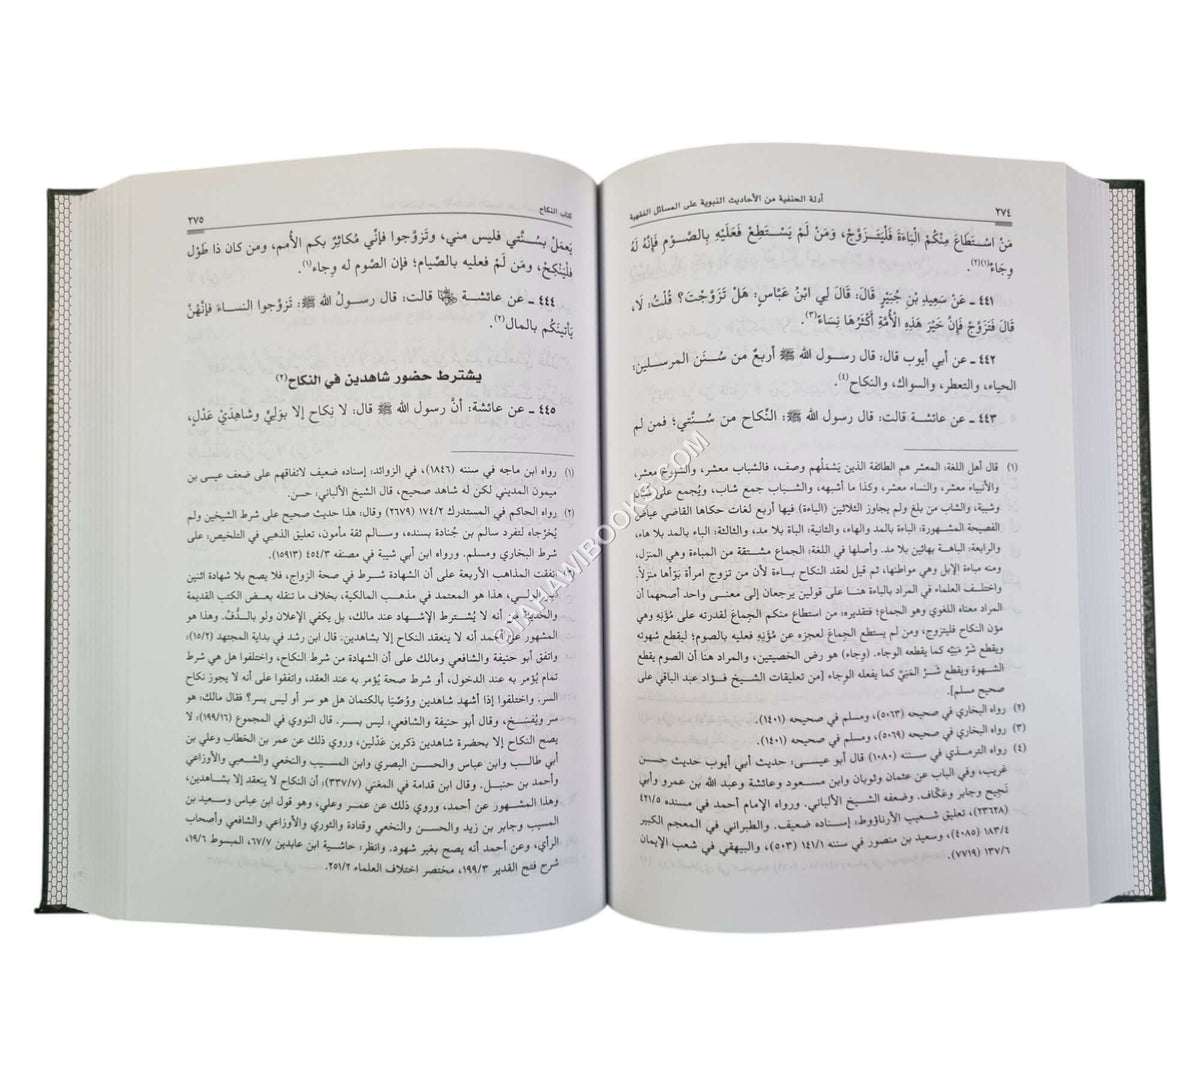 ٢٧٤
أدلة الحنفية من الأحاديث النبوية على المسائل الفقهية
مَنِ اسْتَطَاعَ مِنْكُمْ الْبَاءَةَ فَلْيَتَزَوَّجْ، وَمَنْ لَمْ يَسْتَطِعْ فَعَلَيْهِ بِالصَّوْمِ فَإِنَّهُ لَهُ
وِجَاءٌ(١)(٢).
٤٤١ ـ عَنْ سَعِيدِ بْنِ جُبَيْرٍ قَالَ: قَالَ لِي ابْنُ عَبَّاسٍ: هَلْ تَزَوَّجْتَ؟ قُلْتُ: لَا،
قَالَ فَتَزَوَّجْ فَإِنَّ خَيْرَ هَذِهِ الْأُمَّةِ أَكْثَرُهَا نِسَاءً(٣).
٤٤٢ ـ عن أبي أيوب قال: قال رسول الله ﷺ أربعٌ من سُنَن المرسلين:
الحياء، والتعطر، والسواك، والنكاح(٤).
٤٤٣ ـ عن عائشة قالت: قال رسول الله ﷺ: النِّكاح من سُنَّتي؛ فمن لم
(١) قال أهل اللغة: المعشر هم الطائفة الذين يَشْمَلُهم وصف، فالشباب معشر، والشيوخ معشر،
والأنبياء معشر، والنساء معشر، وكذا ما أشبهه، والشباب جمع شاب، ويُجمع على شُبَّان
وشببة، والشاب من بلغ ولم يجاوز الثلاثين (الباءة) فيها أربع لغات حكاها القاضي عياض
الفصيحة المشهورة: الباءة بالمد والهاء، والثانية: الباة بلا مد، والثالثة: الباء بالمد بلا هاء،
والرابعة: الباهة بهائين بلا مد. وأصلها في اللغة: الجماع مشتقة من المباءة وهي المنزل،
ومنه مباءة الإبل وهي مواطنها، ثم قيل لعقد النكاح باءة لأن من تزوج امرأة بَوَّأها منزلاً.
واختلف العلماء في المراد بالباءة هنا على قولين يرجعان إلى معنى واحد أصحهما أن
المراد معناه اللغوي وهو الجماع؛ فتقديره: من استطاع منكم الجماعَ لقدرته على مُؤَنِه وهي
مؤن النكاح فليتزوج؛ ومن لم يستطع الجماعَ لعجزه عن مُؤَنِه فعليه بالصوم؛ ليقطع شهوته
ويقطع شَرَّ مَنِيِّه كما يقطعه الوجاء. (وِجاء) هو رض الخصيتين، والمراد هنا أن الصوم يقطع
الشهوة ويقطع شَرَّ المَنِيِّ كما يفعله الوِجاء [من تعليقات الشيخ فؤاد عبد الباقي على
صحيح مسلم].
(٢) رواه البخاري في صحيحه (٥٠٦٣)، ومسلم في صحيحه (١٤٠١).
(٣) رواه البخاري في صحيحه (٥٠٦٩)، ومسلم في صحيحه (١٤٠١).
(٤) رواه الترمذي في سننه (١٠٨٠) قال أبو عيسى: حديث أبي أيوب حديث حسن
غريب، وفي الباب عن عثمان وثوبان وابن مسعود وعائشة وعبد الله بن عمرو وأبي
نَجِيح وجابر وعَكَّاف. وضعفه الشيخ الألباني. ورواه الإمام أحمد في مسنده ٤٢١/٥
(٢٣٦٢٨)، تعليق شعيب الأرناؤوط: إسناده ضعيف. والطبراني في المعجم الكبير
١٨٣/٤ (٤٠٨٥)، وسعيد بن منصور في سننه ١٤١/١ (٥٠٣)، والبيهقي في شعب الإيمان
١٣٧/٦ (٧٧١٩).
كتاب النكاح
٢٧٥
يَعملْ بِسُنَّتي فليس مني، وتَزوَّجوا فإنّي مُكاثِرٌ بكم الأُمم، ومن كان ذا طَوْل
فلْيَنْكِحْ، ومَن لَمْ فعليه بالصِّيام؛ فإن الصَّوم له وِجاء(١).
٤٤٤ ـ عن عائشة قالت: قال رسولُ الله ﷺ: تَزَوَّجوا النساءَ فإنَّهُنَّ
يَأتينَكُم بالمال(٢).
يشترط حضور شاهدين في النكاح(٣)
٤٤٥ ـ عن عائشة: أنَّ رسول الله ﷺ قال: لا نِكاح إلا بوَليٍّ وشاهِدَيْ عَدْلٍ،
(١) رواه ابن ماجه في سننه (١٨٤٦)، في الزوائد: إسناده ضعيف لاتفاقهم على ضعف عيسى بن
ميمون المديني لكن له شاهد صحيح، قال الشيخ الألباني: حسن.
(٢) رواه الحاكم في المستدرك ١٧٤/٢ (٢٦٧٩) وقال: هذا حديث صحيح على شرط الشيخين ولم
يُخرْجاه لتفرد سالم بن جُنادة بسنده، وسالم ثقة مأمون، تعليق الذهبي في التلخيص: على
شرط البخاري ومسلم. ورواه ابن أبي شيبة في مصنفه ٤٥٤/٣ (١٥٩١٣).
اتفقت المذاهب الأربعة على أن الشهادة شرط في صحة الزواج، فلا يصح بلا شهادة اثنين
غير الولي، هذا هو المعتمد في مذهب المالكية، بخلاف ما تنقله بعض الكتب القديمة
والحديثة عن أنه لا يُشترط الإشهاد عند مالك، بل يكفي الإعلان ولو بالدُّف. هذا هو
المشهور عن أحمد أنه لا ينعقد النكاح إلا بشاهدين. قال ابن رشد في بداية المجتهد (١٥/٢):
واتفق أبو حنيفة والشافعي ومالك على أن الشهادة من شرط النكاح، واختلفوا هل هي شرط
تمام يُؤمر به عند الدخول، أو شرط صحة يُؤمر به عند العقد، واتفقوا على أنه لا يجوز نكاح
السر. واختلفوا إذا أشهد شاهدين ووُصِّيَا بالكتمان هل هو سر أو ليس بسر؟ فقال مالك: هو
سر ويُفسَخ، وقال أبو حنيفة والشافعي: ليس بسر. قال النووي في المجموع (١٩٩/١٦): لا
يصح النكاح إلا بحضرة شاهدين ذكرين عَدْلين، وروي ذلك عن عمر بن الخطاب وعلي بن
أبي طالب وابن عباس والحسن البصري وابن المسيب والنخعي والشعبي والأوزاعي
وأحمد بن حنبل. وقال ابن قدامة في المغني (٣٣٧/٧): أن النكاح لا ينعقد إلا بشاهدين،
وهذا المشهور عن أحمد، وروي ذلك عن عمر وعلي، وهو قول ابن عباس وسعيد بن
المسيب وجابر بن زيد والحسن والنخعي وقتادة والثوري والأوزاعي والشافعي وأصحاب
الرأي، وعن أحمد أنه يصح بغير شهود. وانظر: حاشية ابن عابدين ٦٧/٧، المبسوط ١٩/٦،
شرح فتح القدير ١٩٩/٣، مختصر اختلاف العلماء ٢٥١/٢.
ALTAHAWIBOOKS.COM